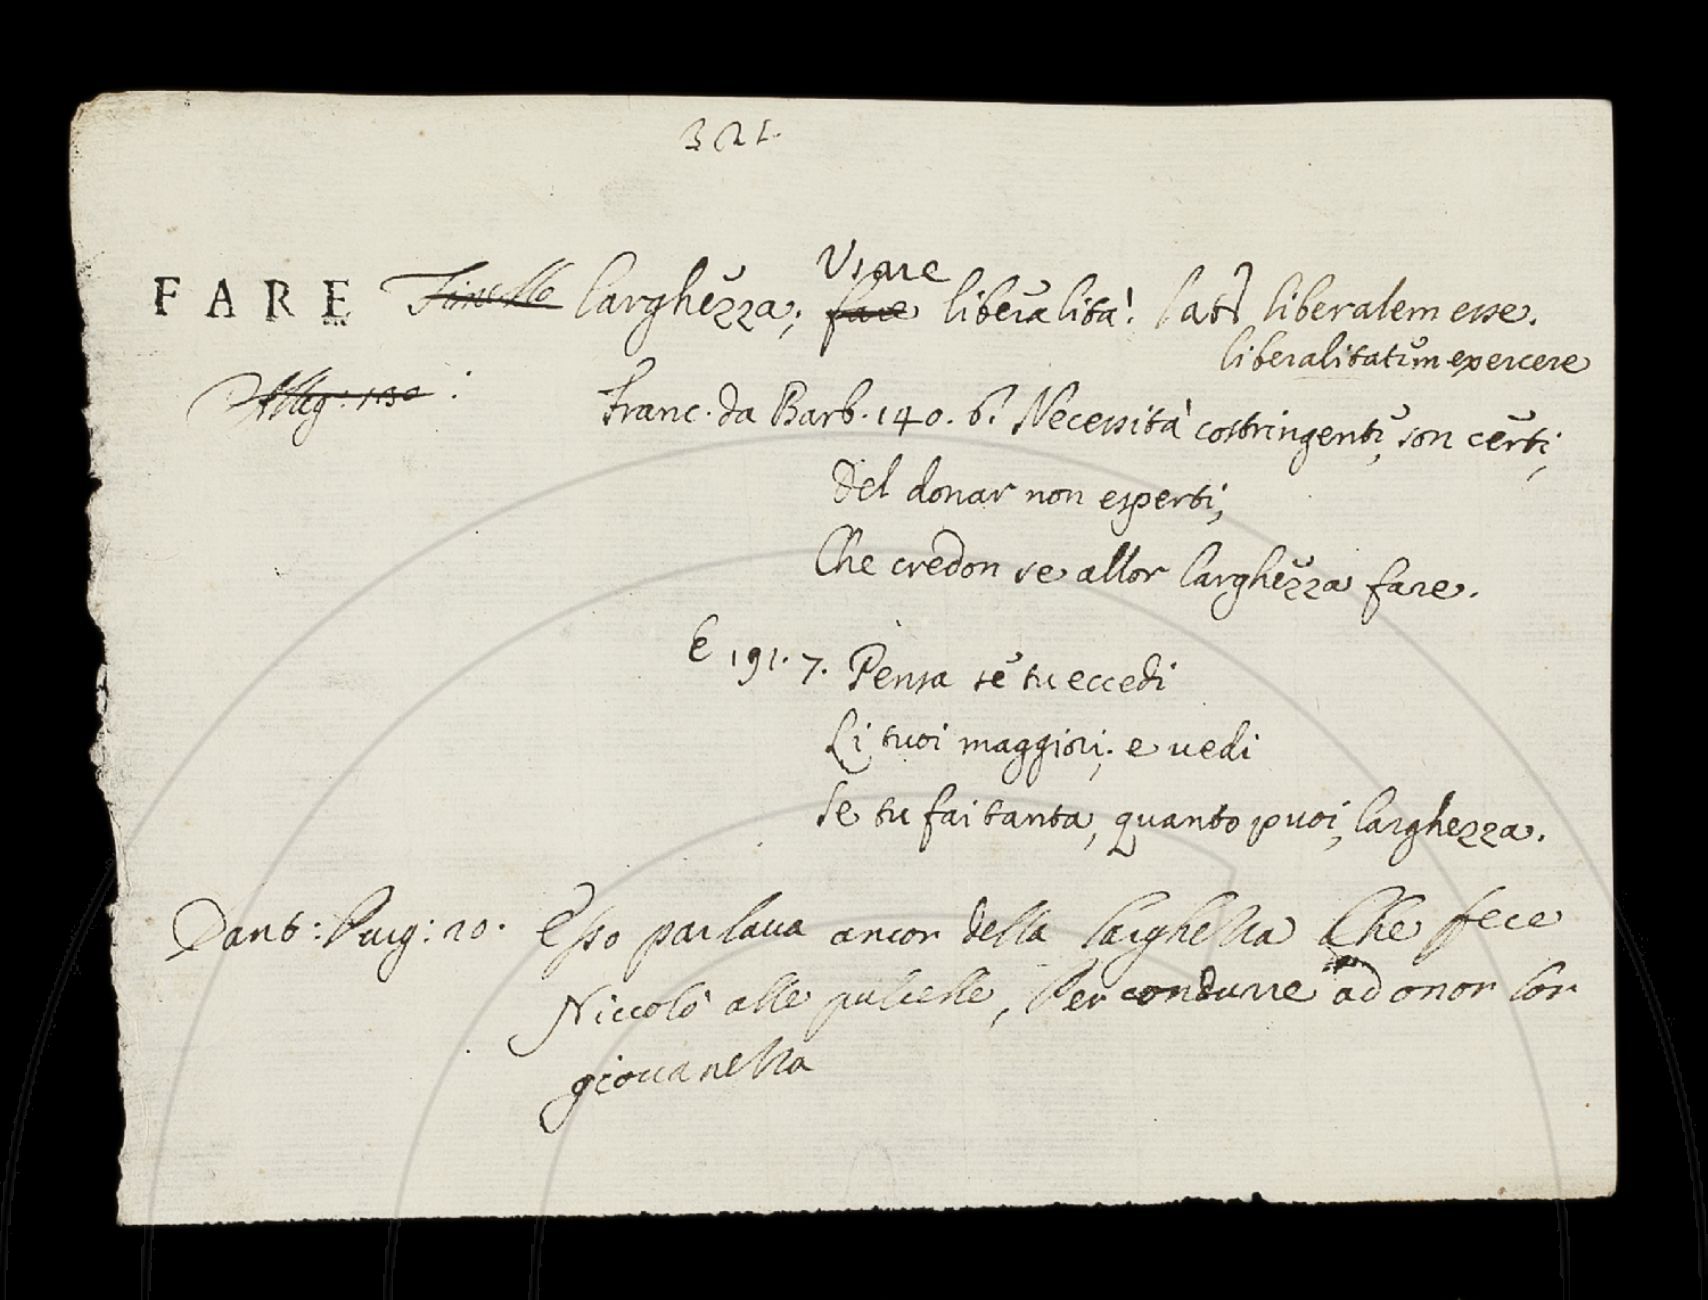 321.
FARE Finello larghezza; Usare fare liberalità. lat. liberalem esse.
liberalitatem exercere
Alleg: 130 :
Franc. da Barb. 140. 6. Necessità costringenti, son certi,
Del donar non esperti,
Che credon se allor larghezza fare.
E 191. 7. Pensa se tu eccedi
Li tuoi maggiori; e uedi
Se tu fai tanta, quanto puoi, larghezza.
Dant: Purg: 20. Esso parlaua ancor della larghezza Che fece
Niccolò alle pulcelle, Per condurre ad onor lor
giouanezza